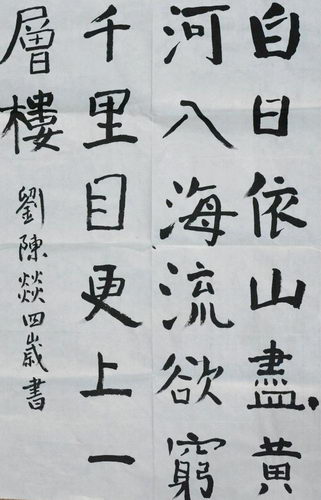 白日依山盡黄
河入海流欲窮
千里目更上一
層樓
劉陳燚四歲書